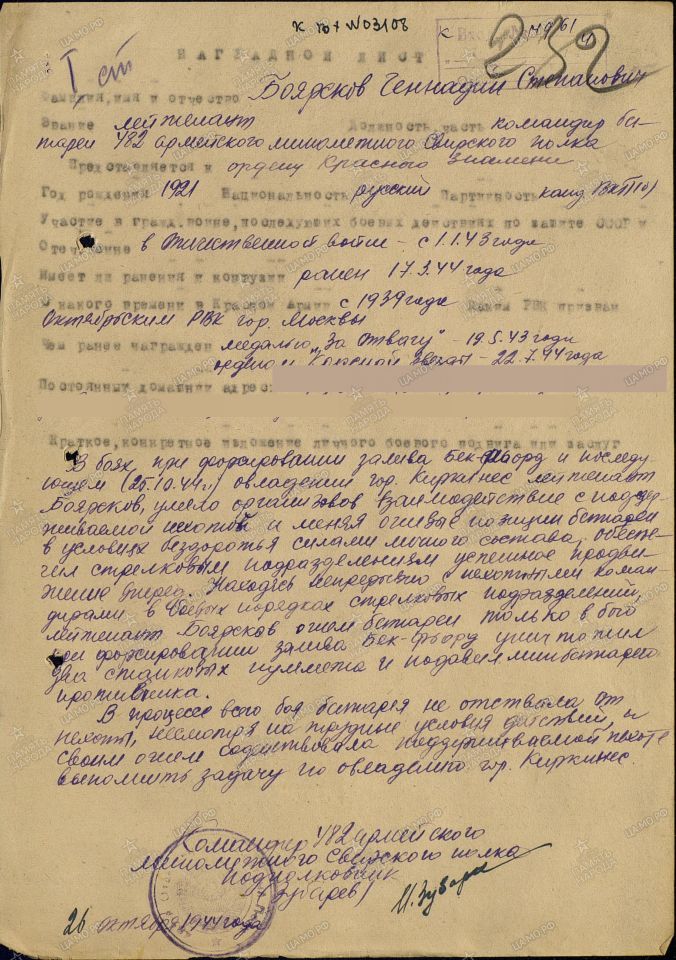 К вх N03108
Вход. №
232
I ст
НАГРАДНОЙ ЛИСТ
Фамилия, имя и отчество Боярсков Геннадий Степанович
Звание лейтенант Должность, часть командир ба-
тареи 482 армейского минометного Свирского полка
Представляется к ордену Красного Знамени
Год рождения 1921 Национальность русский Партийность канд. ВКП(б)
Участие в гражд. войне, последующих боевых действиях по защите СССР и
Отеч. войне в Отечественной войне - с 1.1.43 года
Имеет ли ранения и контузии ранен 17.3.44 года
С какого времени в Красной армии с 1939 года Каким РВК призван
Октябрьским РВК гор. Москвы
Чем ранее награжден медалью "За Отвагу" - 19.5.43 года
орденом Красной Звезды - 22.7.44 года
Постоянный домашний адрес:
Краткое, конкретное изложение личного боевого подвига или заслуг
В боях при форсировании залива Бек-фьорд и последу-
ющем (25.10.44 г) овладении гор. Киркинес лейтенант
Боярсков, умело организовав взаимодействие с поддер-
живаемой пехотой и меняя огневые позиции батареи
в условиях бездорожья силами личного состава, обеспе-
чил стрелковым подразделениям успешное продви-
жение вперед. Находясь непрерывно с пехотными коман-
дирами в боевых порядках стрелковых подразделений,
лейтенант Боярсков огнем батареи только в бою
при форсировании залива Бек-Фьорд уничтожил
два станковых пулемета и подавил минбатарею
противника.
В процессе всего боя батарея не отставала от
пехоты, несмотря на трудные условия действий, и
своим огнем содействовала поддерживаемой пехоте
выполнить задачу по овладению гор. Киркинес.
Командир 482 армейского
минометного Свирского полка
подполковник
(Зубарев)
26 октября 1944 года